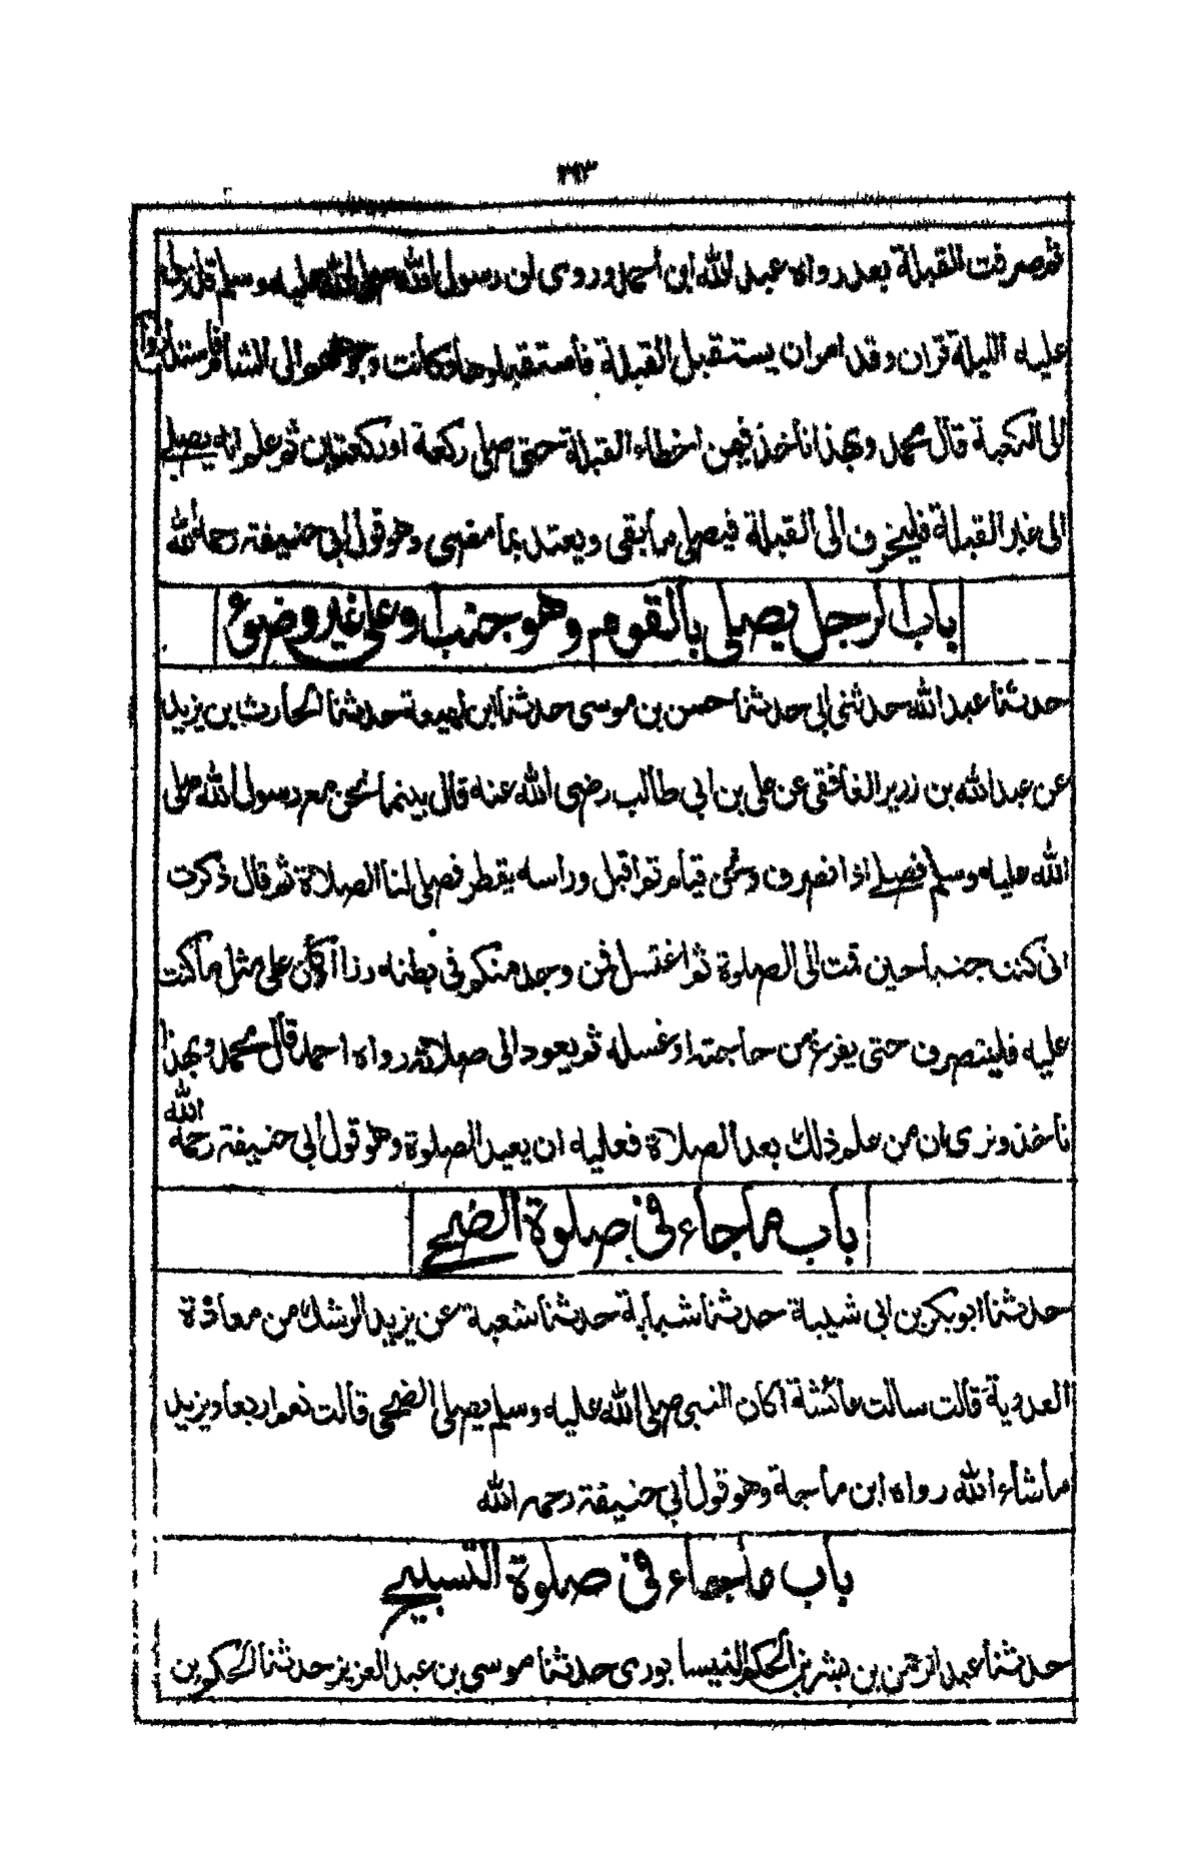 ثم صرفت القبلة بعد رواه عبد الله ابن أحمد وروى ان رسول الله صلى الله عليه وسلم قد انزل
عليه الليلة قران وقد امر ان يستقبل القبلة فاستقبلوها وكانت وجوههم الى الشام فاستداروا
الى الكعبة قال محمد وبهذا نأخذ فيمن اخطاء القبلة حتى صلى ركعة او ركعتين ثم علم انه يصلى
الى غير القبلة فلينحرف الى القبلة فيصلى ما بقى ويعتد بما مضى وهو قول ابى حنيفة رحمه الله
باب الرجل يصلى بالقوم وهو جنب او على غير وضوء
حدثنا عبد الله حدثنى ابى حدثنا حسن بن موسى حدثنا ابن لهيعة حدثنا الحارث بن يزيد
عن عبد الله بن زرير الغافقى عن على بن ابى طالب رضى الله عنه قال بينما نحن مع رسول الله صلى
الله عليه وسلم فصلى اذا نصرف ونحن قيام ثم اقبل وراسه يقطر فصلى لنا الصلاة ثم قال ذكرت
انى كنت جنبا حين قمت الى الصلوة ثم اغتسل فمن وجد منكم فى بطنه رزا أو كان على مثل ما كنت
عليه فلينصرف حتى يفرغ من حاجته او غسله ثم يعود الى صلاته رواه احمد قال محمد وبهذا
نأخذ ونرى ان من علم ذلك بعد الصلاة فعليه ان يعيد الصلوة وهو قول ابى حنيفة رحمه الله
باب ما جاء فى صلوة الضحى
حدثنا ابو بكر بن ابى شيبة حدثنا شبابة حدثنا شعبة عن يزيد الرشك من معاذة
العدوية قالت سالت عائشة أكان النبى صلى الله عليه وسلم يصلى الضحى قالت نعم اربعا ويزيد
ما شاء الله رواه ابن ماجة وهو قول أبى حنيفة رحمه الله
باب ما جاء فى صلوة التسبيح
حدثنا عبد الرحمن بن بشر بن الحكم النيسابورى حدثنا موسى بن عبد العزيز حدثنا الحكم بن